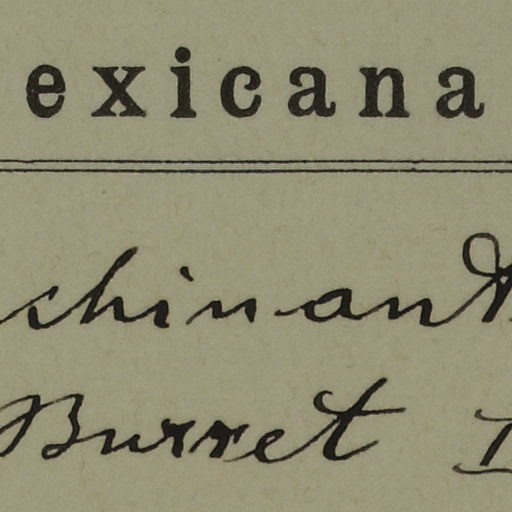 exicana
chinan
Burret